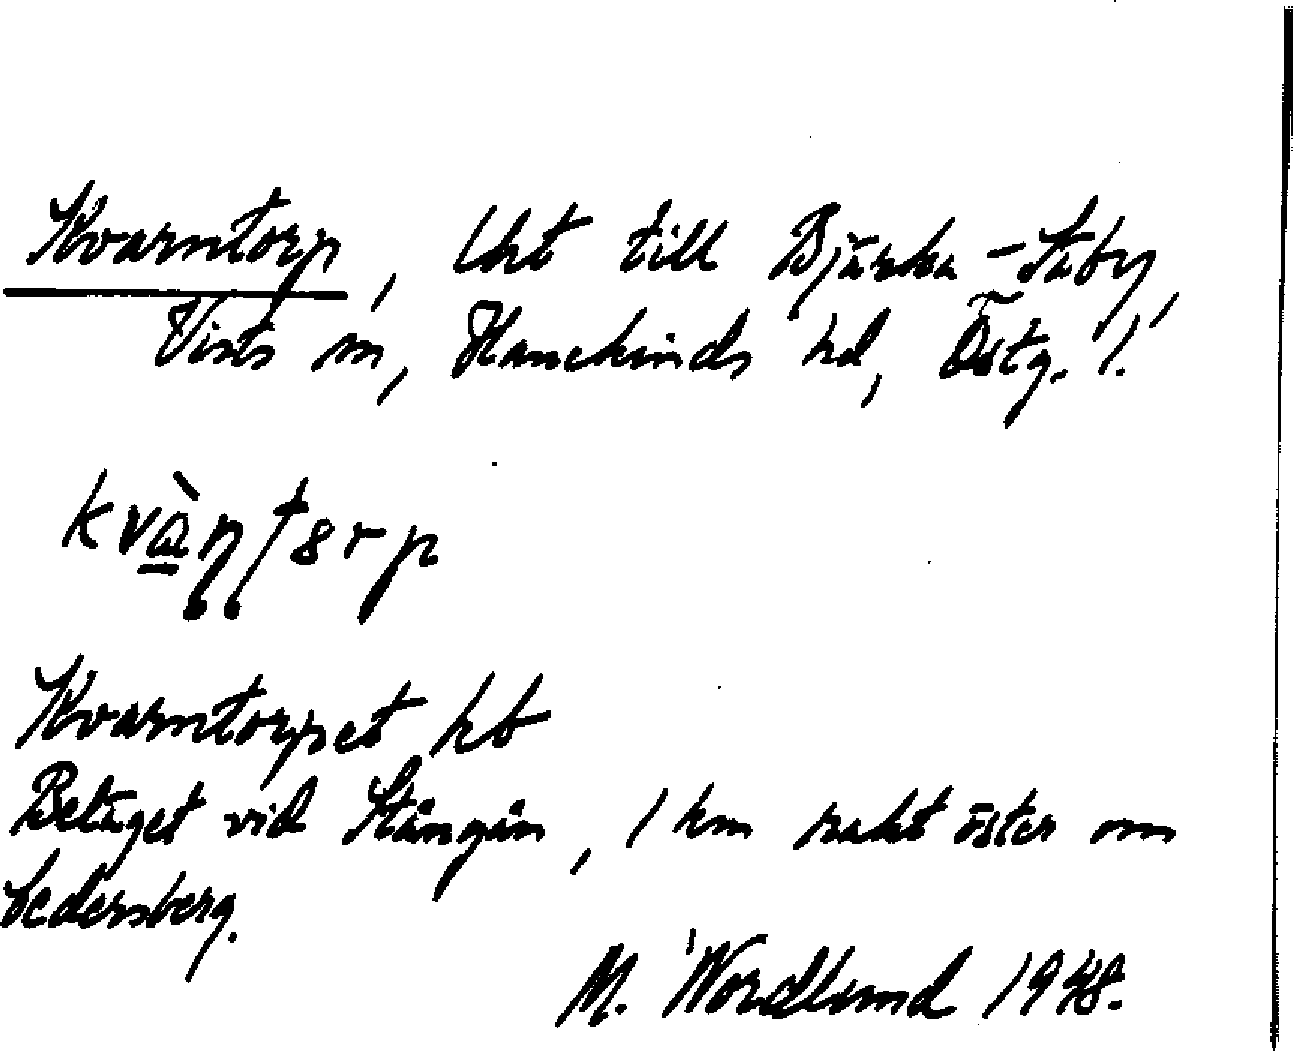 Kvarntorp, lht till Bjärka-Säby,
Vists sn, Hanekinds hd, Östg. l.
kvàṇṭorp
Kvarntorpet kb
Beläget vid Stångån, 1 km rakt öster om
Sedersberg.
M. Nordlund 1948.